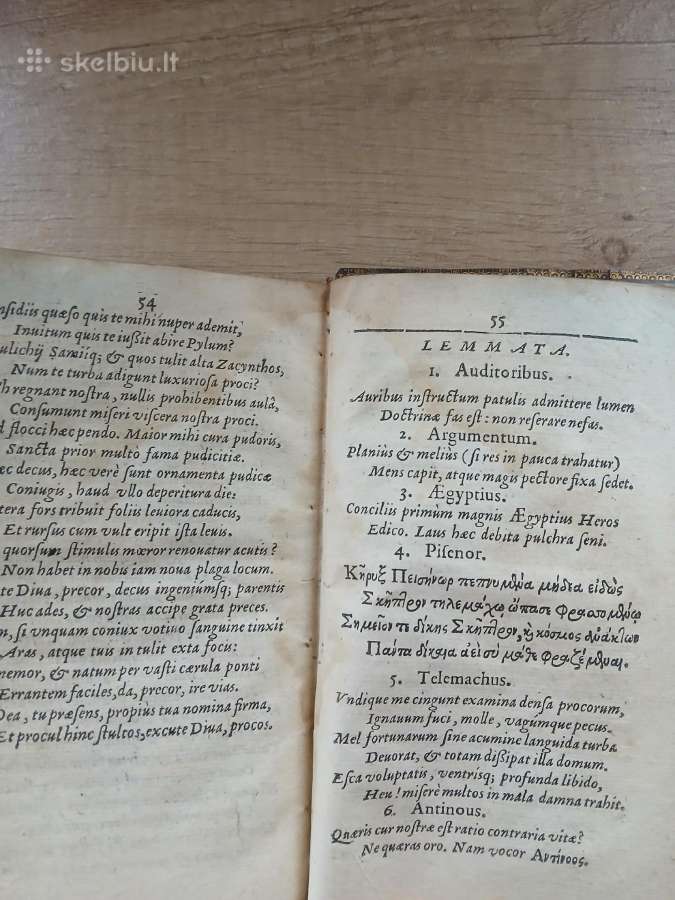 skelbiu.lt
54
nsidiis quæso quis te mihi nuper ademit,
Inuitum quis te iußit abire Pylum?
ulichij Samiiq; & quos tulit alta Zacynthos,
Num te turba adigunt luxuriosa proci?
regnant nostra, nullis prohibentibus aulâ,
Consumunt miseri viscera nostra proci.
flocci hæc pendo. Maior mihi cura pudoris,
Sancta prior multò fama pudicitiæ.
æc decus, hæc verè sunt ornamenta pudicæ
Coniugis, haud vllo deperitura die:
tera fors tribuit foliis leuiora caducis,
Et rursus cum vult eripit ista leuis.
quorsum stimulis mœror renouatur acutis?
Non habet in nobis iam noua plaga locum.
te Diua, precor, decus ingeniúmq; parentis
Huc ades, & nostras accipe grata preces.
si vnquam coniux votiuo sanguine tinxit
Aras, atque tuis in tulit exta focis:
memor, & natum per vasti cærula ponti
Errantem faciles, da, precor, ire vias.
Dea, tu præsens, propius tua nomina firma,
Et procul hinc stultos, excute Diua, procos.
55
LEMMATA.
1. Auditoribus.
Auribus instructum patulis admittere lumen
Doctrinæ fas est: non reserare nefas.
2. Argumentum.
Planiùs & meliùs (si res in pauca trahatur)
Mens capit, atque magis pectore fixa sedet.
3. Ægyptius.
Conciliis primùm magnis Ægyptius Heros
Edico. Laus hæc debita pulchra seni.
4. Pisenor.
Κῆρυξ Πεισήνωρ πεπνυμένα μήδεα εἰδὼς
Σκῆπτρον τηλεμάχῳ ὤπασε
Σημεῖον τε δίκης Σκῆπτρον, ἢ κόσμος ἀνάκτων
Πάντα δίκαια
5. Telemachus.
Vndique me cingunt examina densa procorum,
Ignauum fuci, molle, vagúmque pecus.
Mel fortunarum sine acumine languida turba
Deuorat, & totam dißipat illa domum.
Esca voluptatis, ventrisq; profunda libido,
Heu! miserè multos in mala damna trahit.
6. Antinous.
Quæris cur nostræ est ratio contraria vitæ?
Ne quæras oro. Nam vocor Αντίνοος.